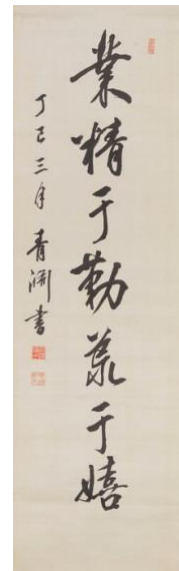 業精于勤荒于嬉
丁巳三月青淵書